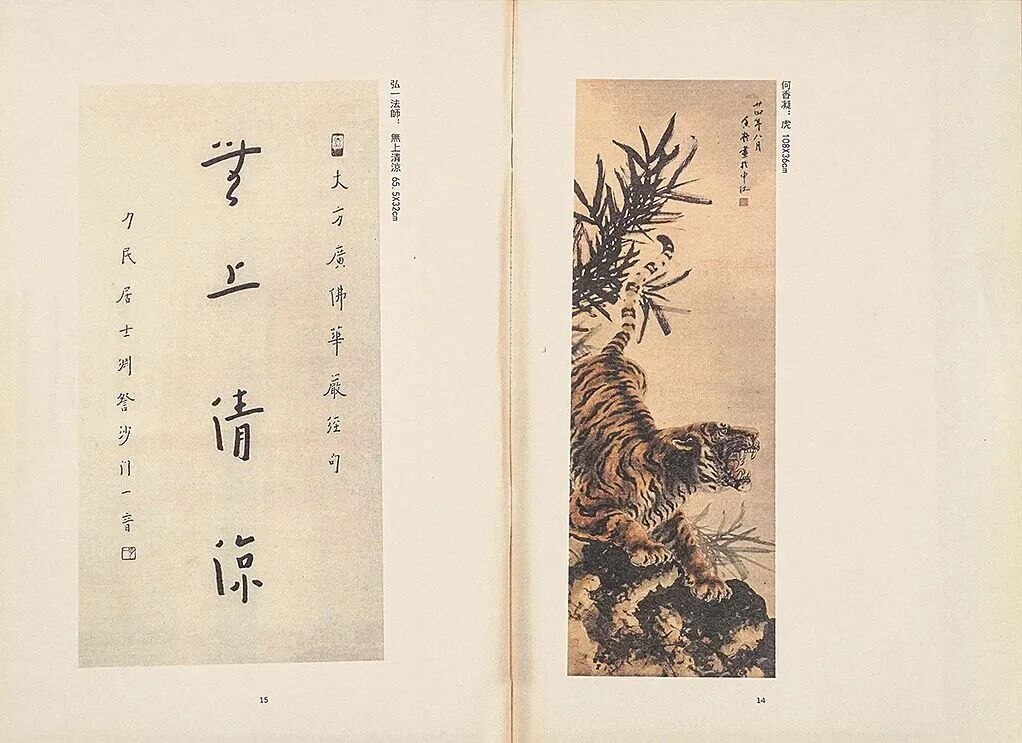 何香凝: 虎 108X36cm
廿四年八月
香凝畫於申江
14
弘一法師: 無上清涼 65.5X32cm
大方廣佛華嚴經句
無上清涼
力民居士淵詧沙門一音
15